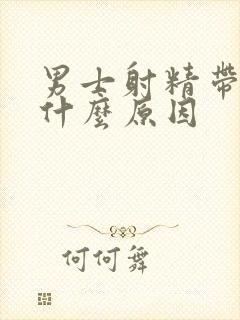 男士射精帶
什麼原因
何何舞